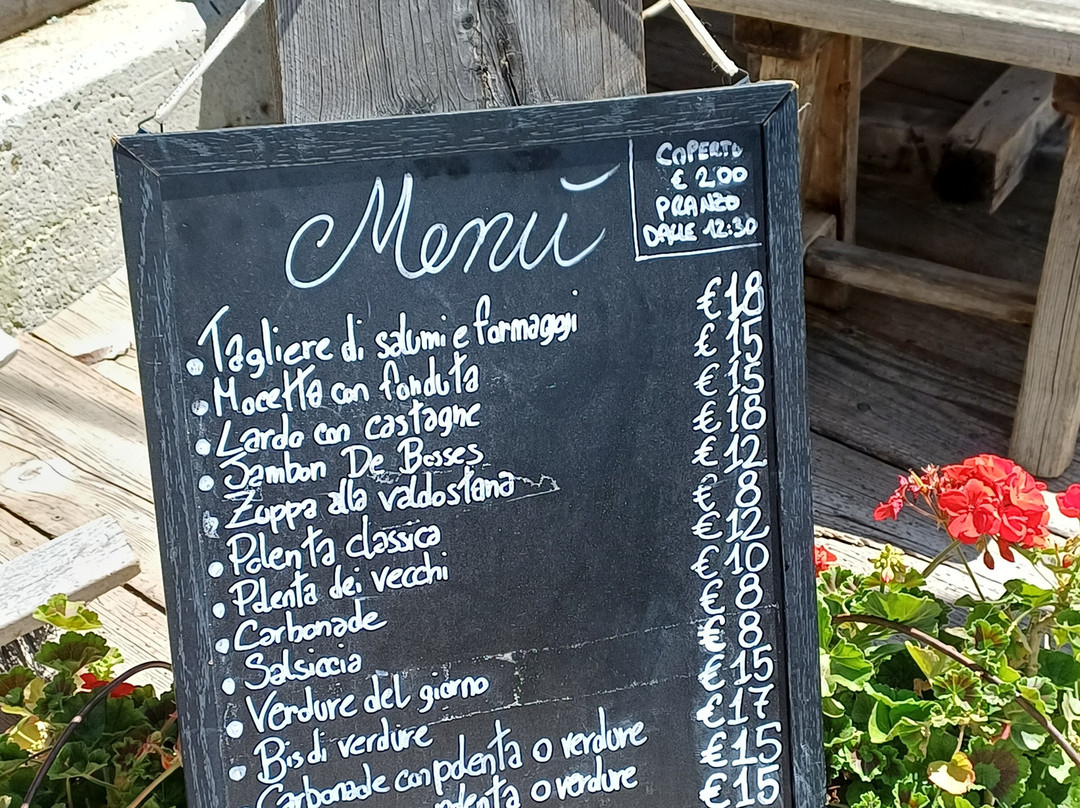 Menù
COPERTO
€ 2,00
PRANZO
DALLE 12:30
Tagliere di salumi e formaggi €18
Mocetta con fonduta €15
Lardo con castagne €15
Jambon De Bosses €18
Zuppa alla valdostana €12
Polenta classica €8
Polenta dei vecchi €12
Carbonade €10
Salsiccia €8
Verdure del giorno €8
Bis di verdure €15
Carbonade con polenta o verdure €17
polenta o verdure €15
€15